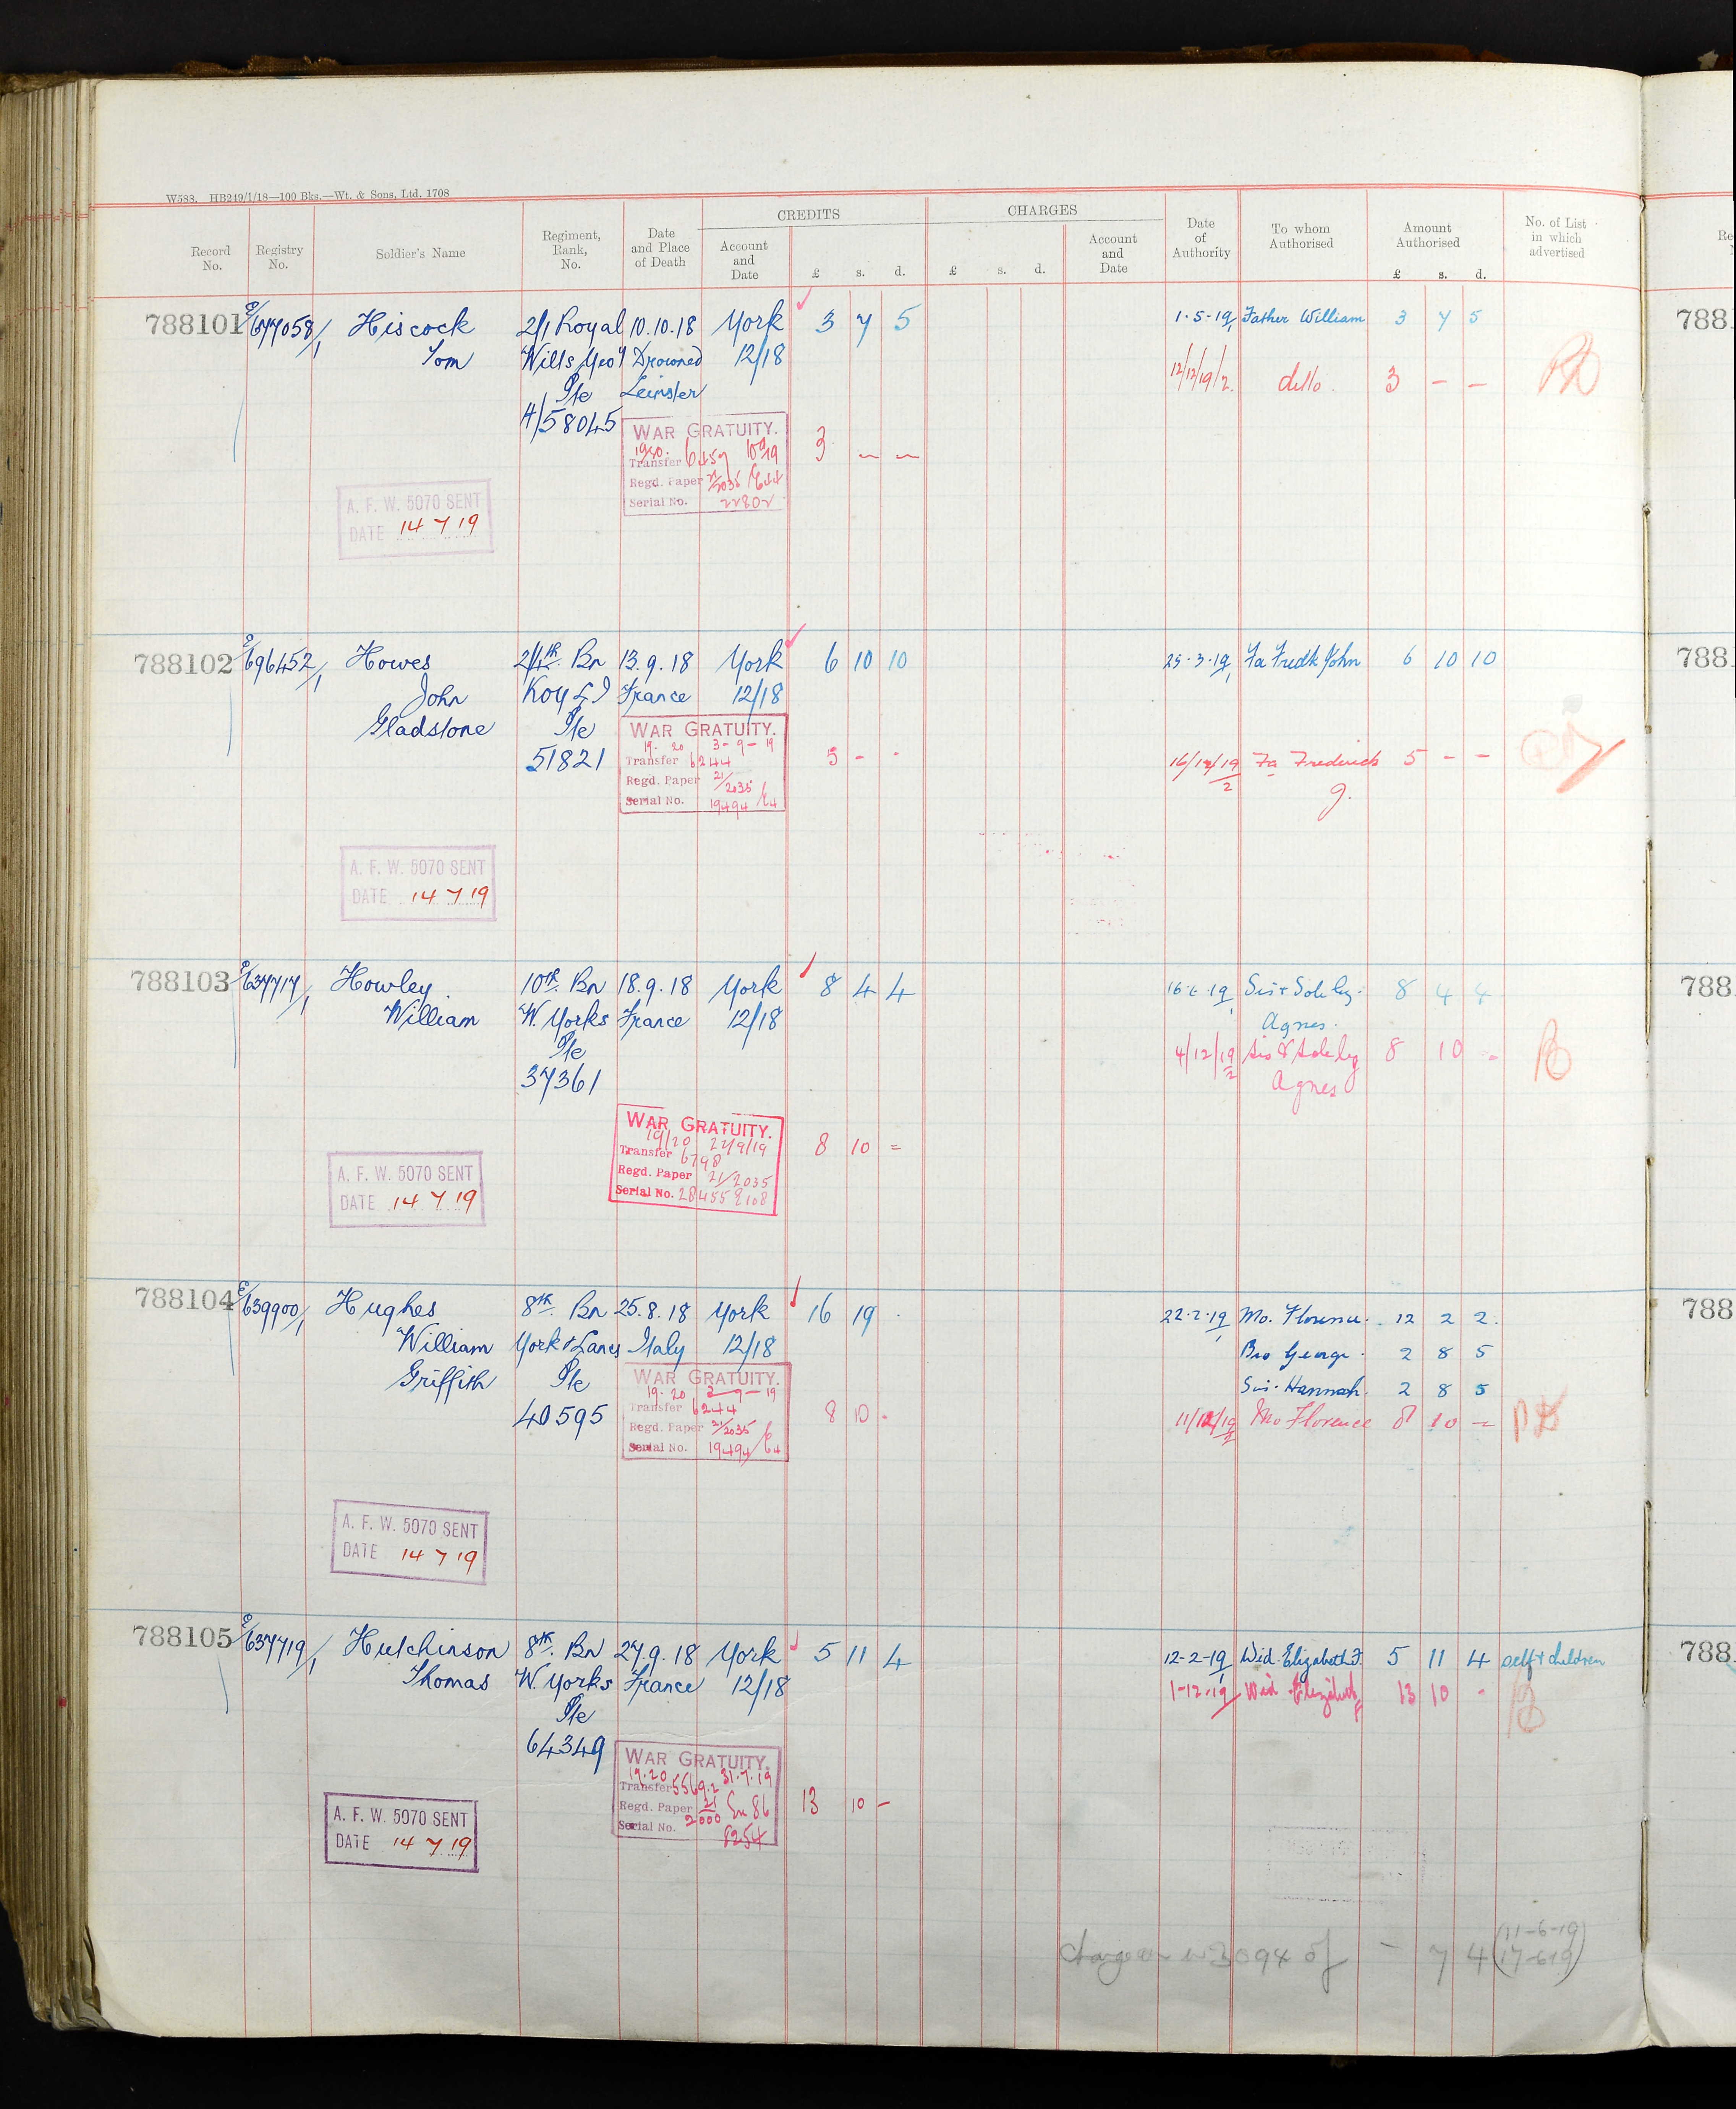 W588. HB249/1/18—100 Bks.—Wt. & Sons, Ltd. 1708
Record No.
Registry No.
Soldier's Name
Regiment, Rank, No.
Date and Place of Death
CREDITS
Account and Date
£ s. d.
CHARGES
£ s. d.
Account and Date
Date of Authority
To whom Authorised
Amount Authorised
£ s. d.
No. of List in which advertised
788101 E/677058/1 Hiscock 2/1 Royal 10.10.18 York 3 7 5 1.5.19/1 Father William 3 7 5
Tom Wilts Yeoy Drowned 12/18
Pte Leinster 12/12/19/2. ditto. 3 – –
H/58045
WAR GRATUITY.
19/20. 10/9/19
Transfer 6459 3 – –
Regd. Paper 21/2035 E44
Serial No. 22802
A. F. W. 5070 SENT
DATE 14 7 19
788102 E/696452/1 Howes 2/4th Bn 13.9.18 York 6 10 10 25.3.19/1 Fa Fredk John 6 10 10
John Koy L I France 12/18
Gladstone Pte
51821
WAR GRATUITY.
19-20 3-9-19
Transfer 6244 5 - - 16/12/19/2 Fa Frederick 5 – –
J.
Regd. Paper 21/2035
Serial No. 19494 E4
A. F. W. 5070 SENT
DATE 14 7 19
788103 E/637717/1 Howley 10th Bn 18.9.18 York 8 4 4 16.6.19/1 Sis & Sole leg. 8 4 4
William W. Yorks France 12/18 Agnes.
Pte 4/12/19/2 Sis & Sole leg 8 10 -
37361 Agnes
WAR GRATUITY.
19/20 22/9/19 8 10 =
Transfer 6798
Regd. Paper 21/2035
Serial No. 28455 E108
A. F. W. 5070 SENT
DATE 14 7 19
788104 E/639900/1 Hughes 8th Bn 25.8.18 York 16 19 . 22.2.19/1 Mo. Florence. 12 2 2.
William York & Lancs Italy 12/18 Bro George. 2 8 5
Griffith Pte Sis. Hannah. 2 8 5
40595 11/12/19/2 Mo Florence 8 10 –
WAR GRATUITY.
19-20 3-9-19
Transfer 6244 8 10 .
Regd. Paper 21/2035
Serial No. 19494 E4
A. F. W. 5070 SENT
DATE 14 7 19
788105 E/637719/1 Hutchinson 8th Bn 27.9.18 York 5 11 4 12-2-19/1 Wid. Elizabeth F. 5 11 4 self & children
Thomas W. Yorks France 12/18 1-12-19/ Wid Elizabeth F 13 10 -
Pte
64349
WAR GRATUITY.
19.20 31.7.19
Transfer 5569.2
Regd. Paper 21/2000 En 86 13 10 –
Serial No. 8254
A. F. W. 5070 SENT
DATE 14 7 19
3094 of – 7 4 (11-6-19)
(17-6-19)